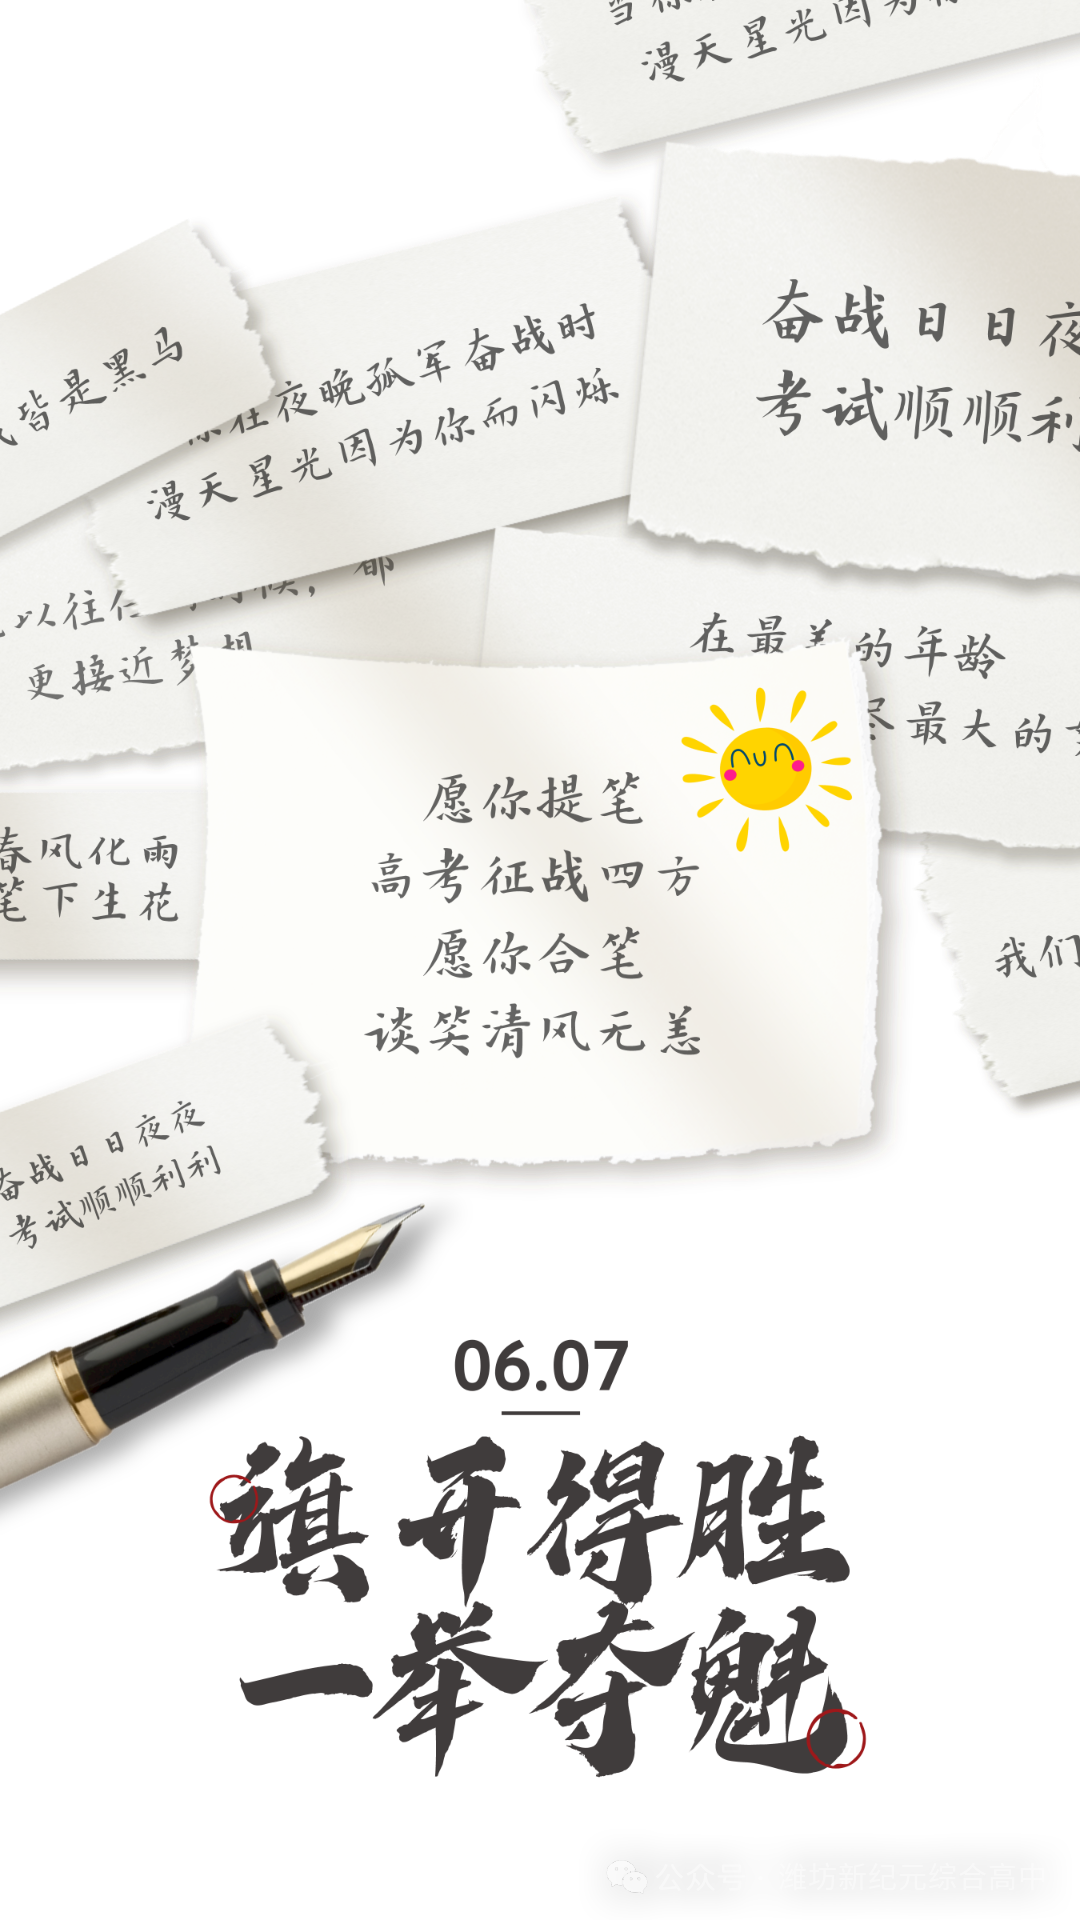 漫天星光因为
奋战日日夜
考试顺顺利
皆是黑马
你在夜晚孤军奋战时
漫天星光因为你而闪烁
以往任何时候，都
更接近梦想
在最美的年龄
尽最大的
愿你提笔
高考征战四方
愿你合笔
谈笑清风无恙
春风化雨
笔下生花
我们
奋战日日夜夜
考试顺顺利利
06.07
旗开得胜
一举夺魁
公众号 潍坊新纪元综合高中